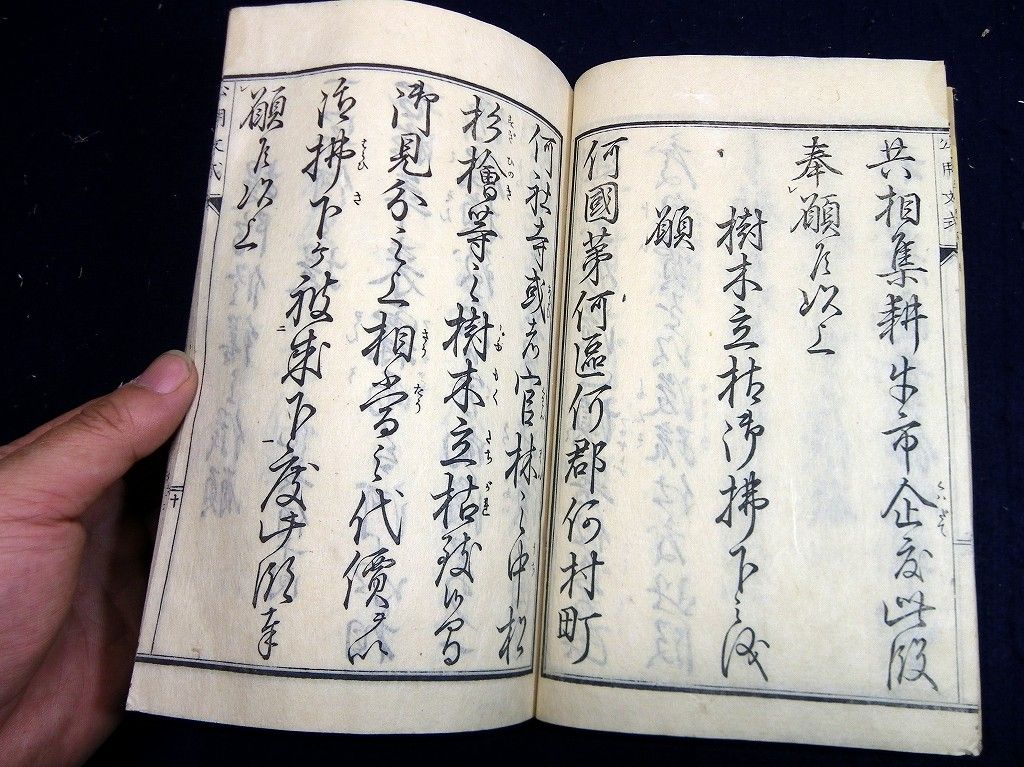 共相集耕牛市企度此段
奉願候以上
樹木立枯御拂下之儀
願
何國第何區何郡何村町
何社寺或者官林之中松
杉檜等之樹木立枯致候間
御見分之上相當之代價ヲ以
御拂下ケ被成下度此段奉
願候以上
公用文式